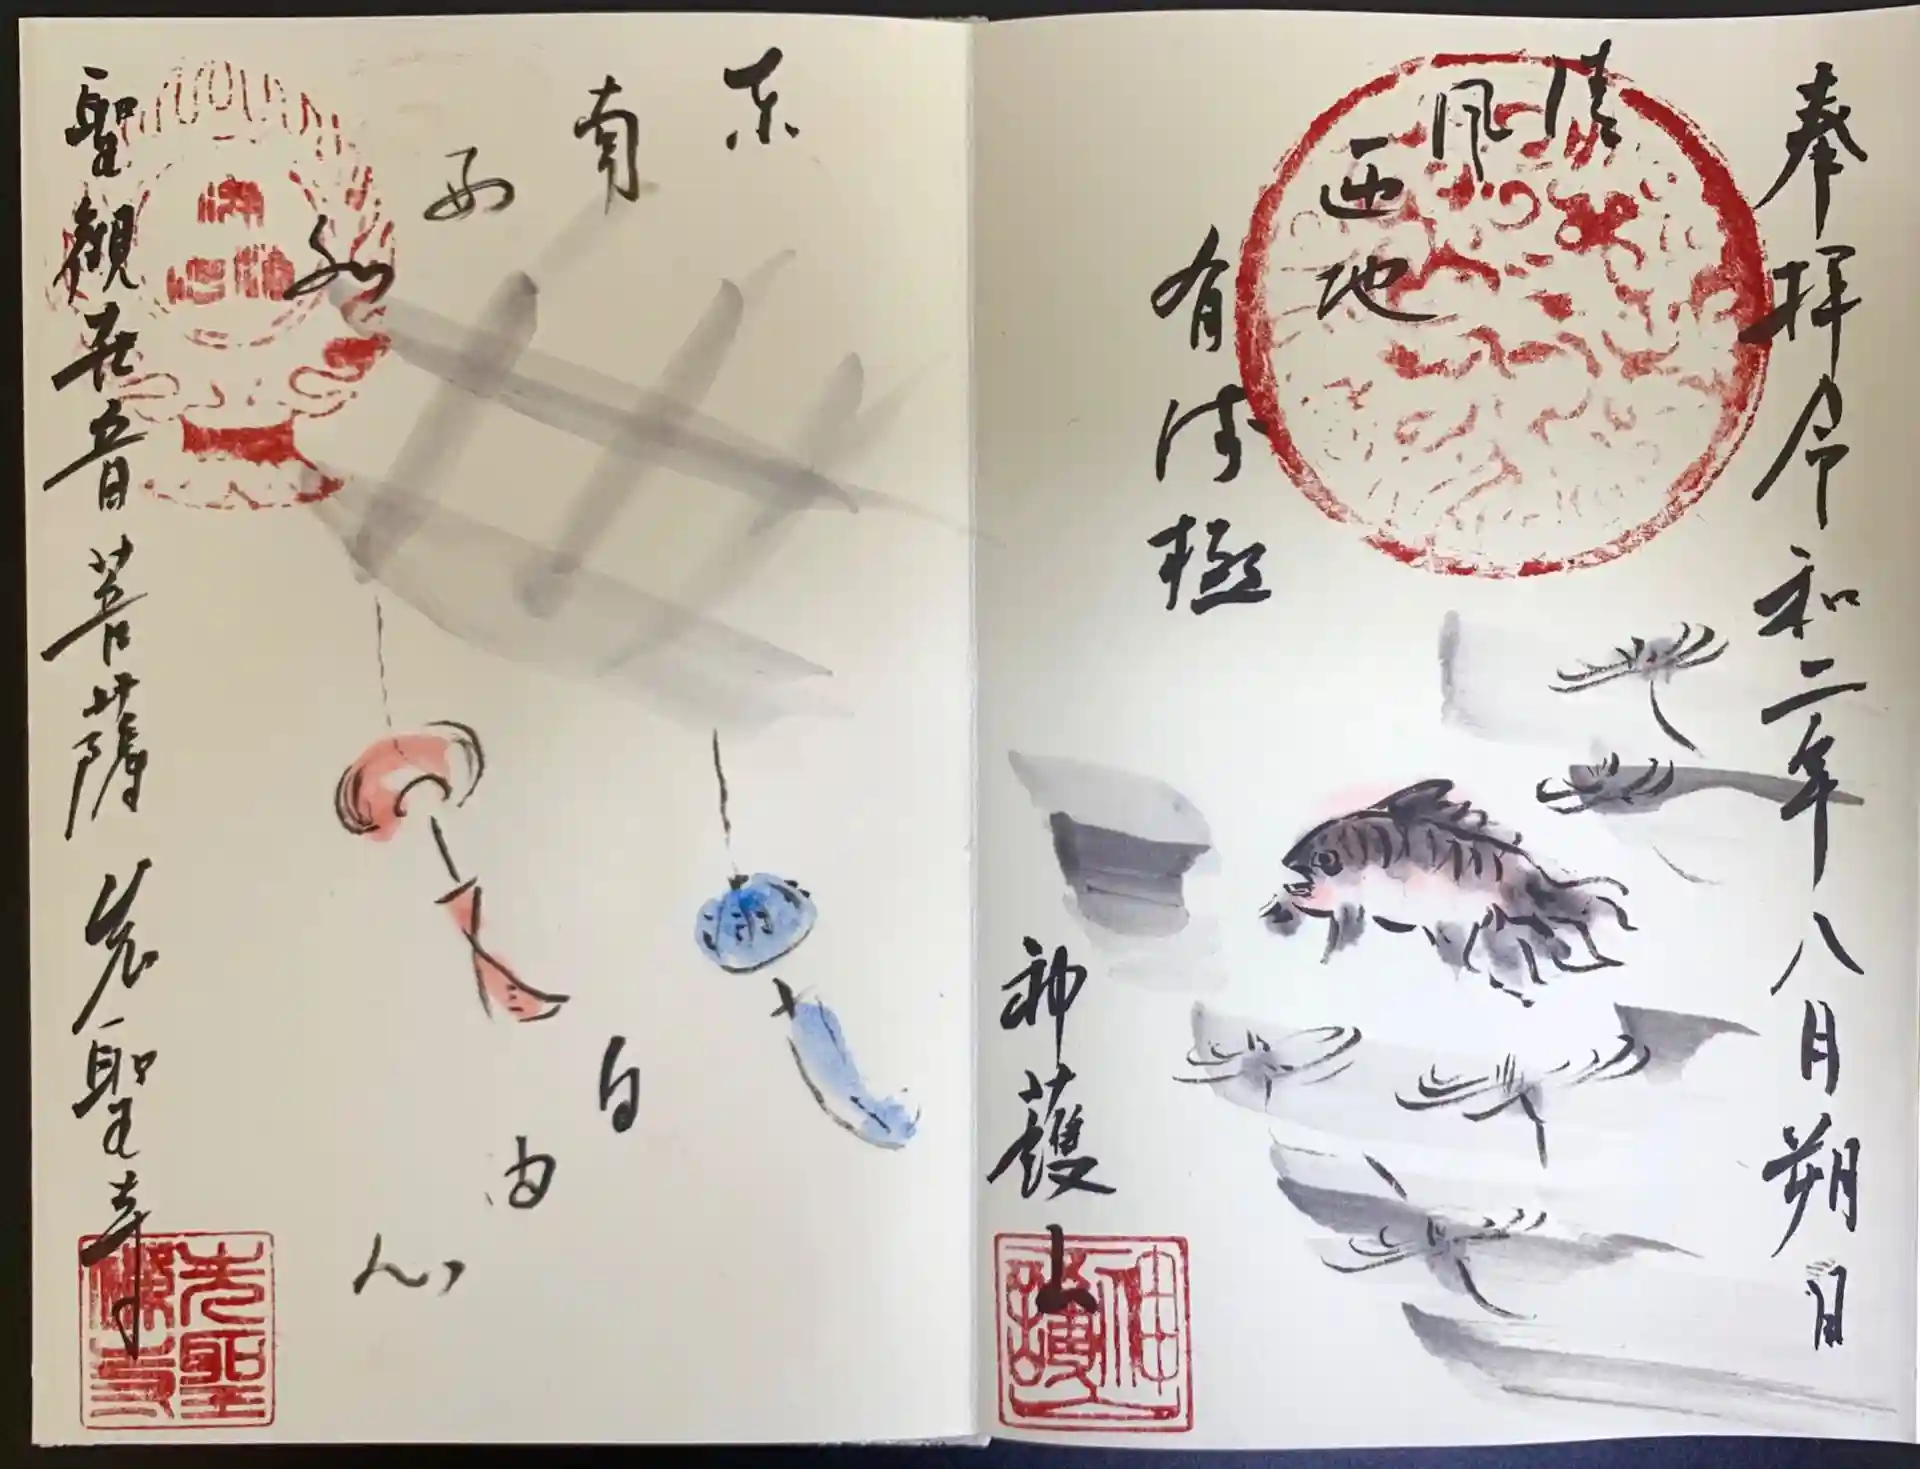 奉拝令和二年八月朔日
清風匝地
有何極
神護山
東南西北
自由心
聖觀世音菩薩 先聖寺
先聖禪寺